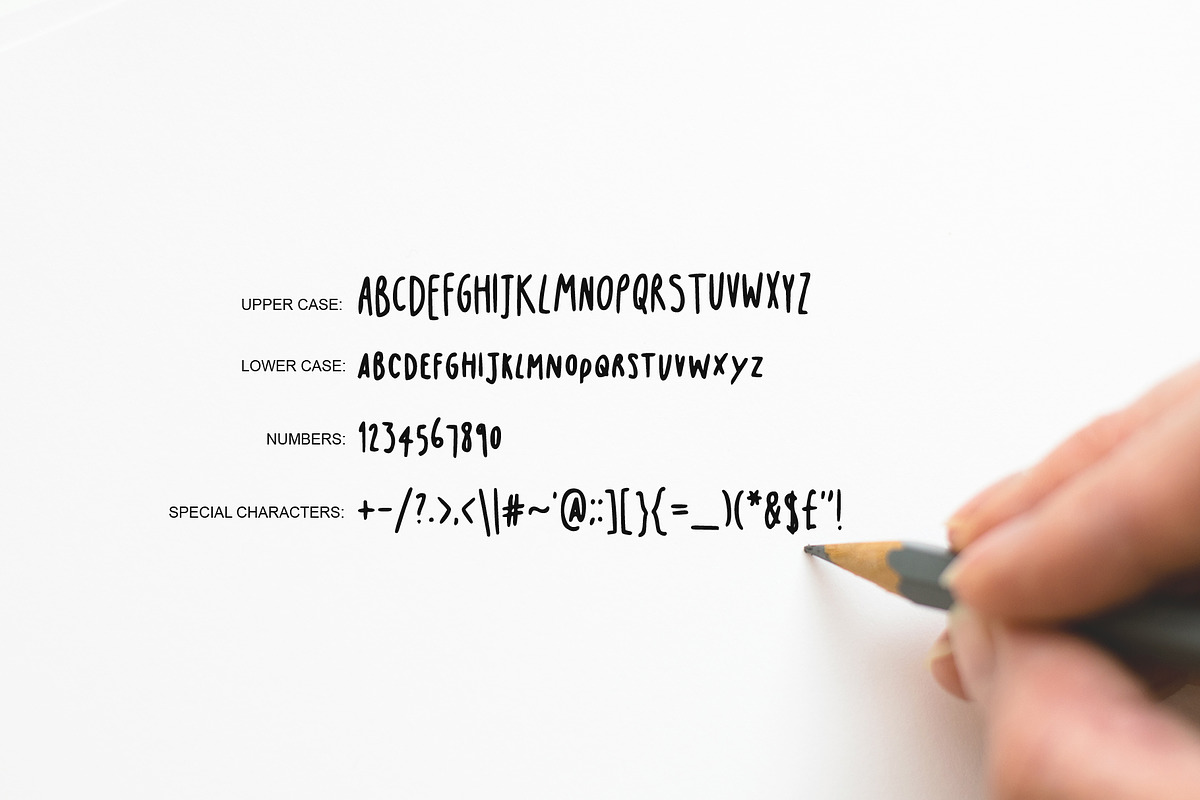 UPPER CASE: ABCDEFGHIJKLMNOPQRSTUVWXYZ
LOWER CASE: ABCDEFGHIJKLMNOpQRSTUVWXyz
NUMBERS: 1234567890
SPECIAL CHARACTERS: +-/?.>,<\|#~'@;:][}{=_)(*&$£"!